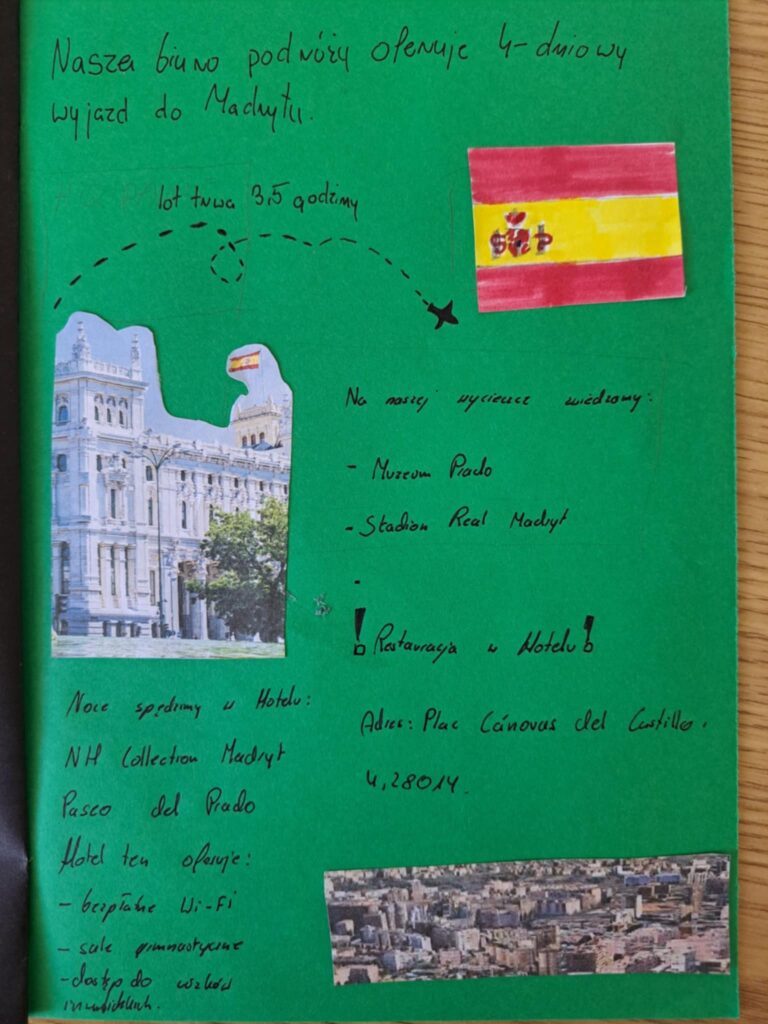 Nasza biuro podróży oferuje 4-dniowy
wyjazd do Madrytu.
lot trwa 3,5 godziny
Na naszej wycieczce zwiedzamy:
- Muzeum Prado
- Stadion Real Madryt
! Restauracja w Hotelu!
Adres: Plac Cánovas del Castillo.
4, 28014.
Noce spędzimy w Hotelu:
NH Collection Madryt
Paseo del Prado
Hotel ten oferuje:
- bezpłatne Wi-Fi
- sale gimnastyczne
- dostęp do wózków
inwalidzkich.